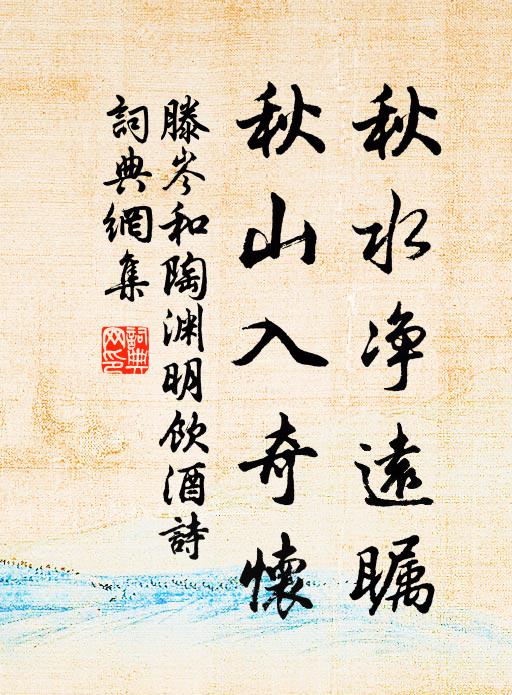 秋水净遠瞩
秋山入奇懷
滕岑和陶渊明饮酒詩
詞典網集
詞典
网印